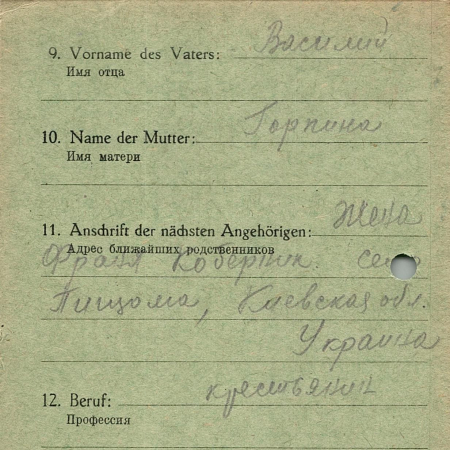 9. Vorname des Vaters: Василий
Имя отца
10. Name der Mutter: Горпина
Имя матери
11. Anschrift der nächsten Angehörigen: Жена
Адрес ближайших родственников
Коберник село
Киевская обл.
Украина
12. Beruf: крестьянин
Профессия